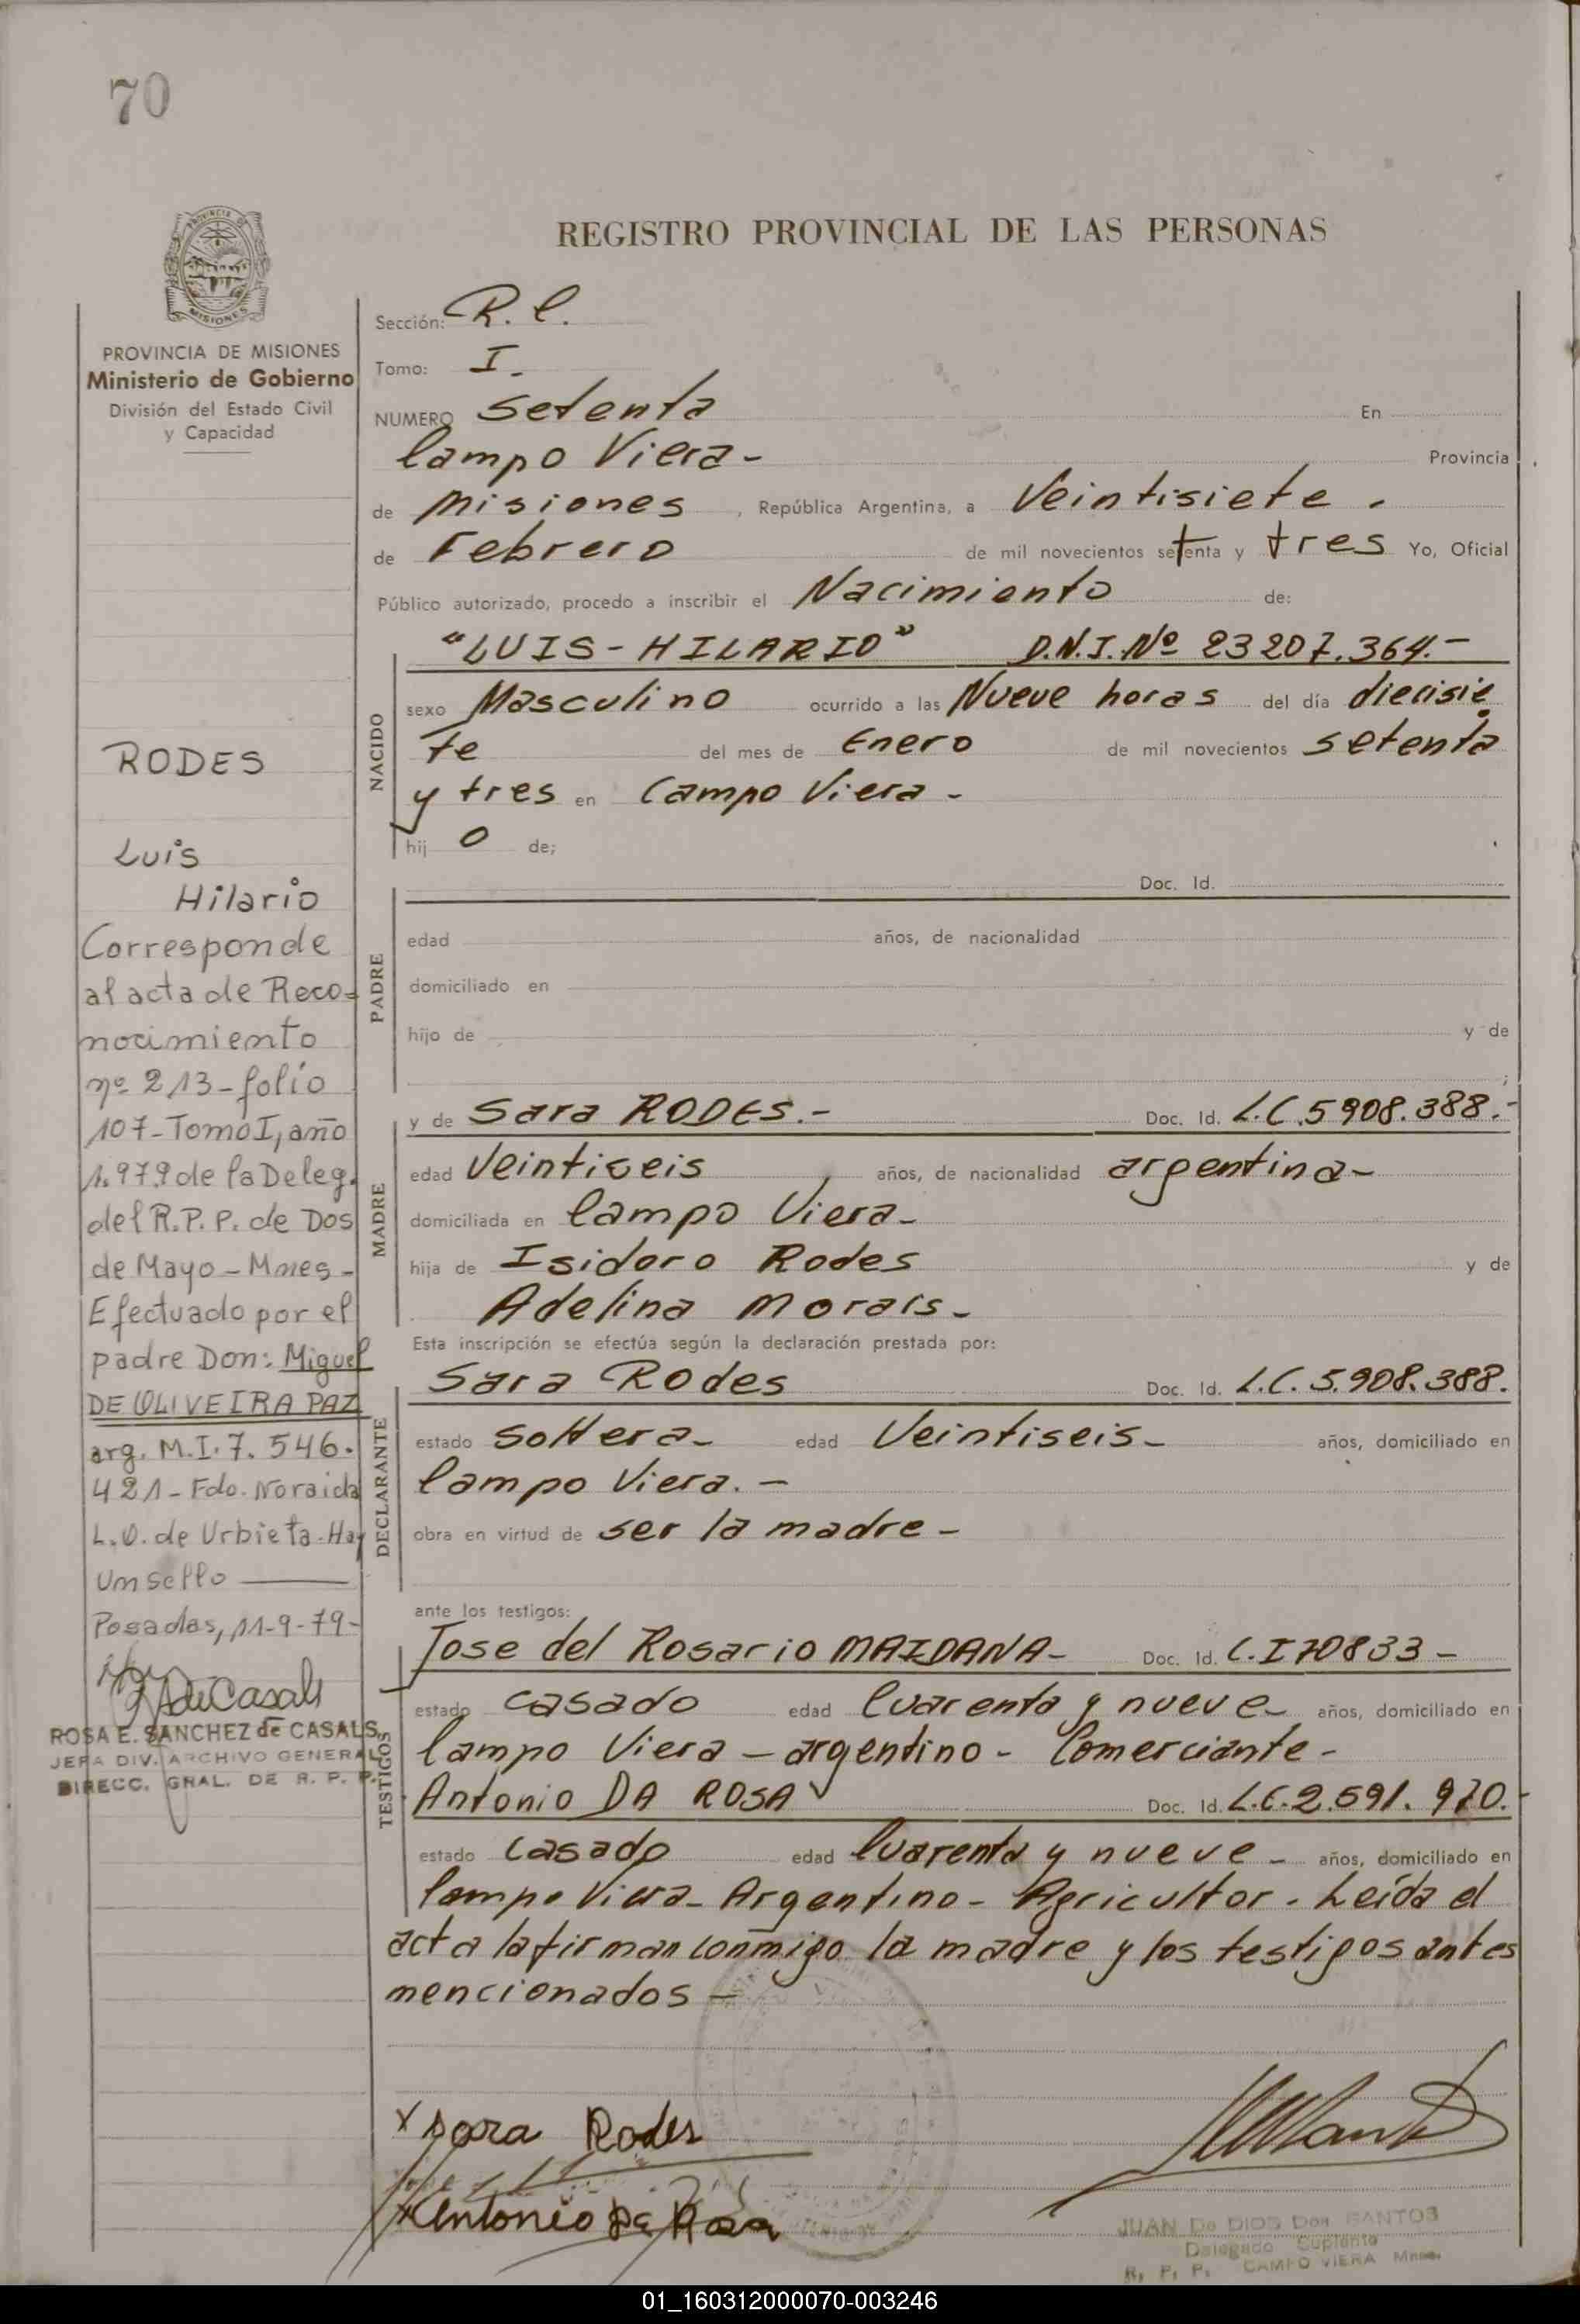 70
REGISTRO PROVINCIAL DE LAS PERSONAS
PROVINCIA DE MISIONES
Ministerio de Gobierno
División del Estado Civil
y Capacidad
RODES
Luis
Hilario
Corresponde
al acta de Reco=
nocimiento
nº 213-folio
107-Tomo I, año
1.979 de la Deleg.
del R.P.P. de Dos
de Mayo-Mnes-
Efectuado por el
padre Don: Miguel
DE OLIVEIRA PAZ
arg. M.I. 7.546.
421-Fdo. Noraida
L.O. de Urbieta-Hay
Un sello
Posadas, 11-9-79-
ROSA E. SANCHEZ de CASALS
JEFA DIV. ARCHIVO GENERAL
DIRECC. GRAL. DE R. P. P.
Sección: R.C.
Tomo: I.
NUMERO Setenta En
Campo Viera- Provincia
de Misiones, República Argentina, a Veintisiete.
de Febrero de mil novecientos setenta y tres Yo, Oficial
Público autorizado, procedo a inscribir el Nacimiento de:
"LUIS-HILARIO" D.N.I.Nº 23207.364.-
NACIDO
sexo Masculino ocurrido a las Nueve horas del día diecisie
te del mes de Enero de mil novecientos setenta
y tres en Campo Viera-
hij o de;
PADRE
Doc. Id.
edad años, de nacionalidad
domiciliado en
hijo de y de
;
MADRE
y de Sara RODES.- Doc. Id. L.C.5908.388.-
edad Veintiseis años, de nacionalidad argentina-
domiciliada en Campo Viera-
hija de Isidoro Rodes y de
Adelina Morais-
Esta inscripción se efectúa según la declaración prestada por:
DECLARANTE
Sara Rodes Doc. Id. L.C. 5.908.388.
estado soltera- edad Veintiseis- años, domiciliado en
Campo Viera.-
obra en virtud de ser la madre-
ante los testigos:
TESTIGOS
Jose del Rosario MAIDANA- Doc. Id. C.I 70833-
estado casado edad Cuarenta y nueve- años, domiciliado en
Campo Viera-argentino-Comerciante-
Antonio DA ROSA Doc. Id. L.C.2.591.970.-
estado Casado edad Cuarenta y nueve- años, domiciliado en
Campo Viera-Argentino-Agricultor. Leída el
acta la firman conmigo la madre y los testigos antes
mencionados-
x Sara Rodes
x Antonio Da Rosa
JUAN De DIOS Dos SANTOS
Delegado Suplente
R. P. P. CAMPO VIERA Mnes.
01_160312000070-003246